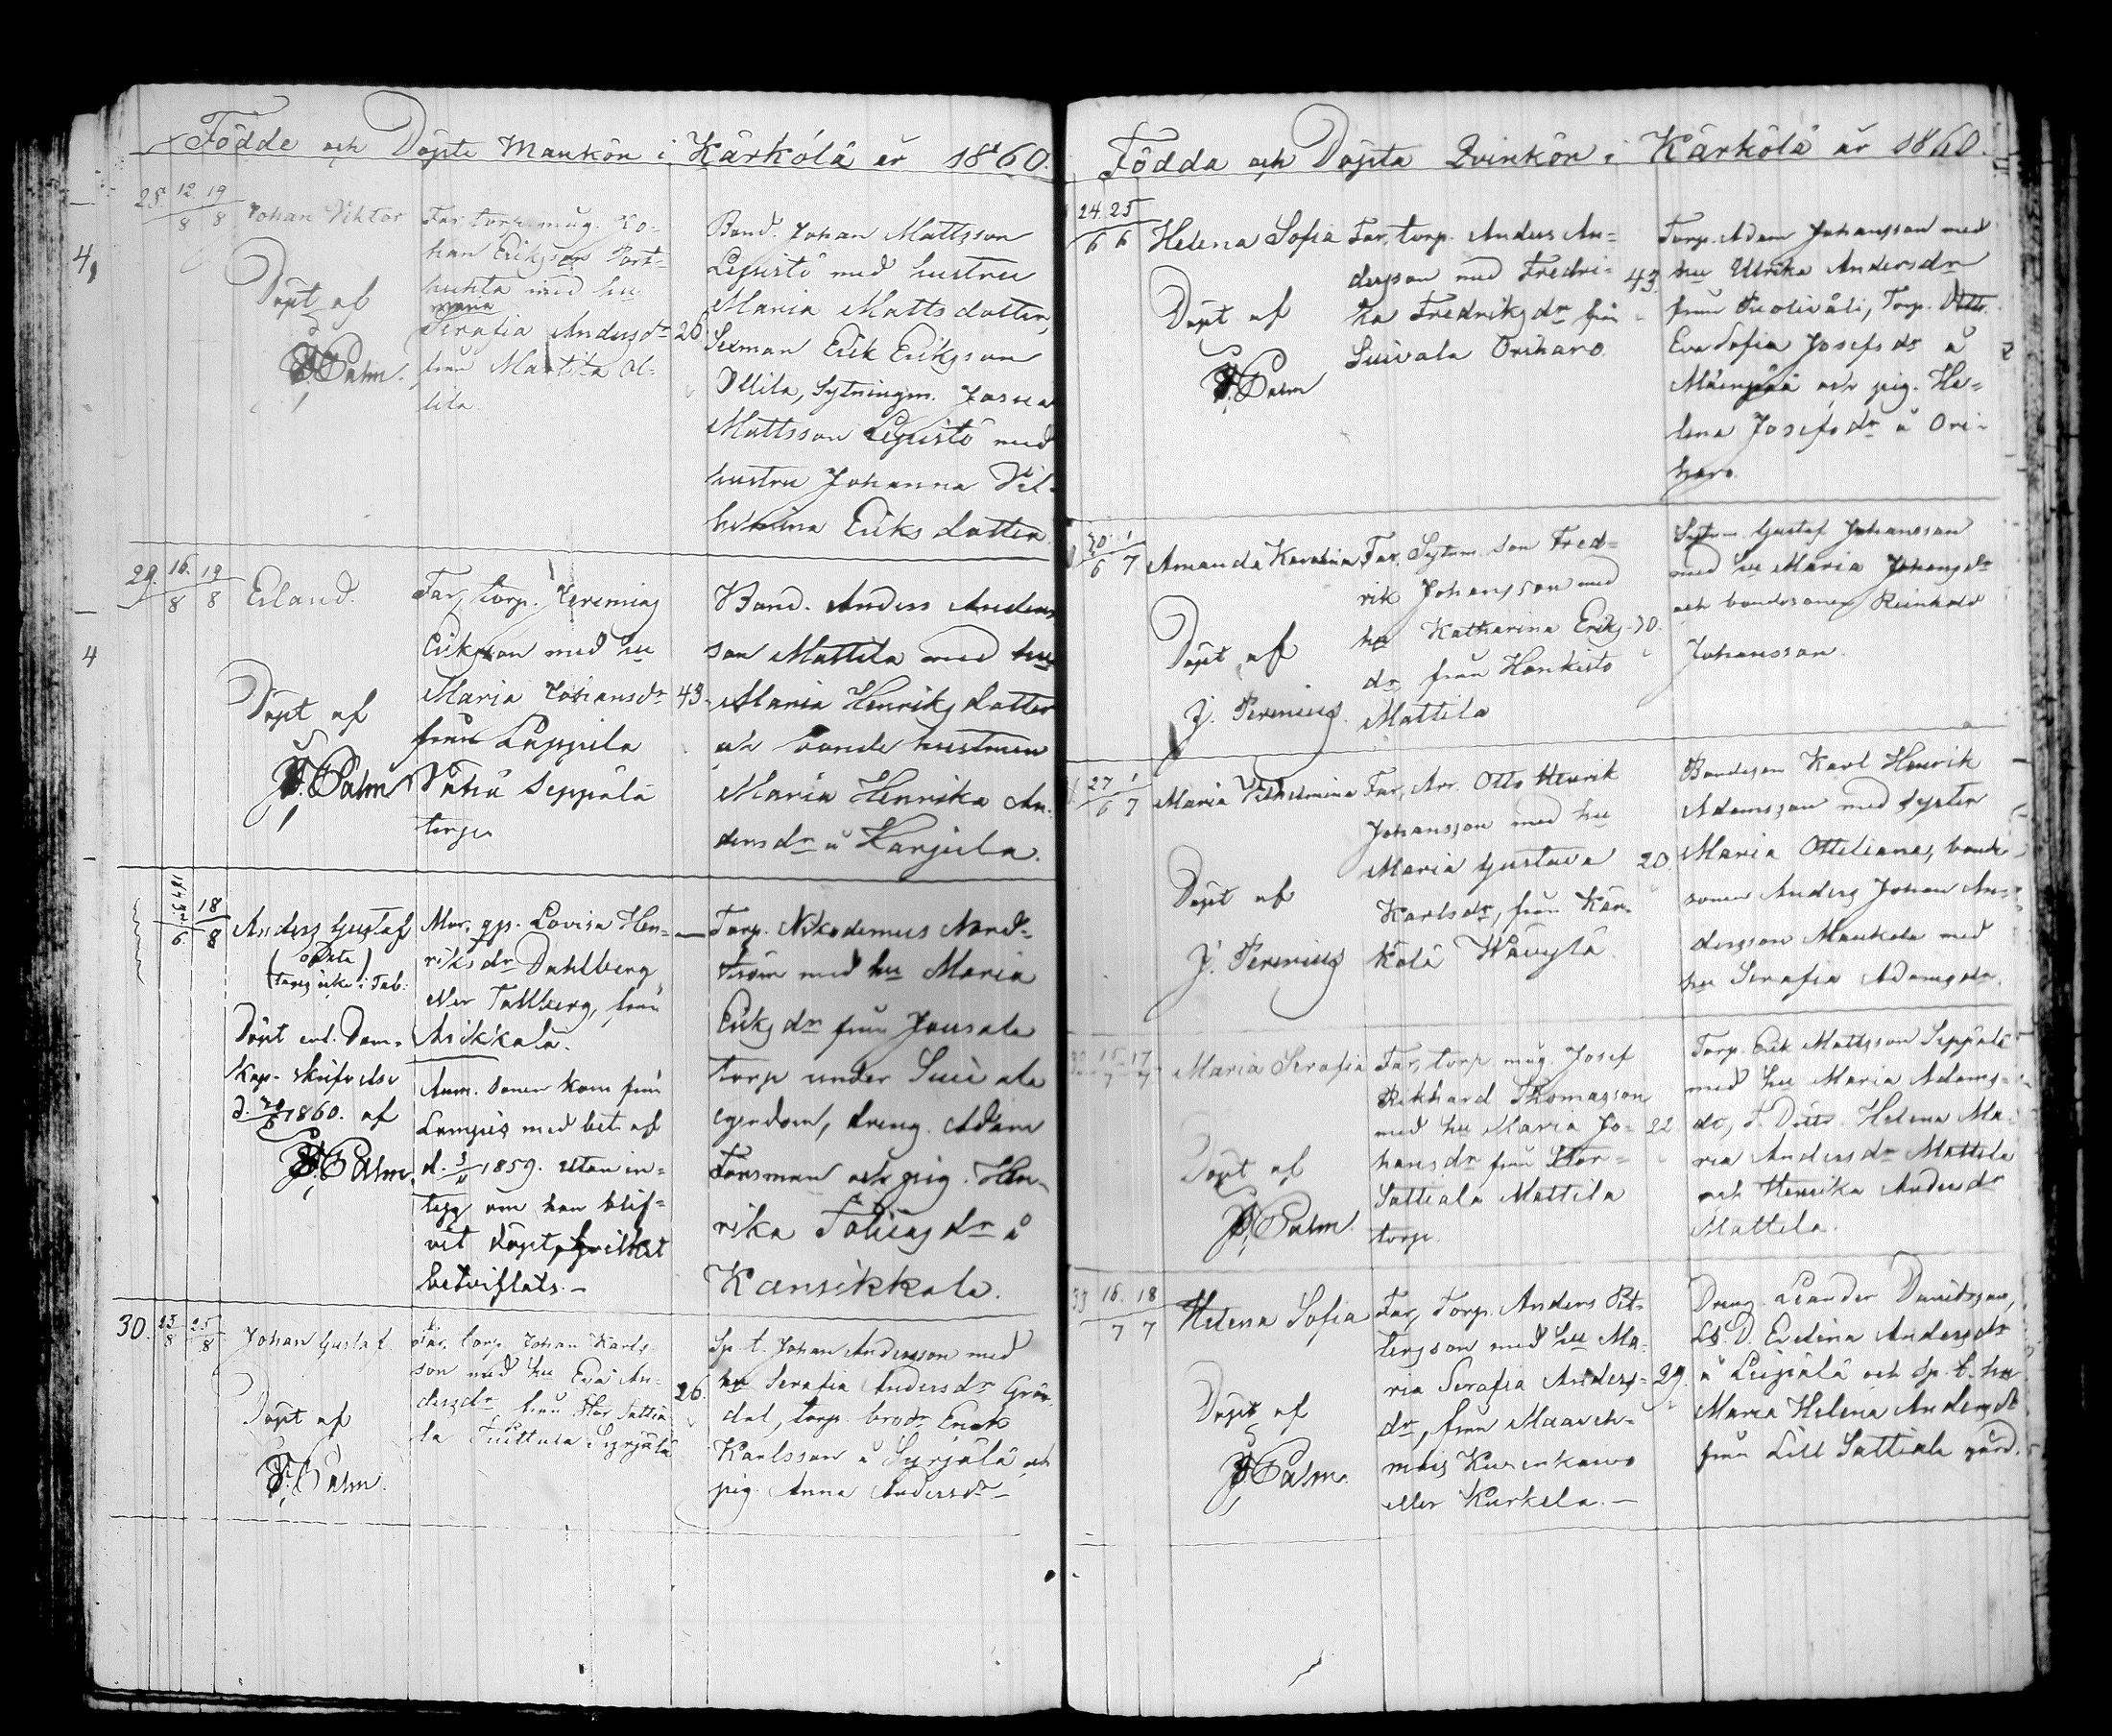 Födde och Döpte Mankön i Kärkölä år 1860.
28. 12/8 19/8 Johan Viktor
Döpt af
Palm.
Far, torp. måg. Jo-
han Eriksson Port-
huhta med hu
Maria
Serafia Andersdr 26.
från Mattila Ol-
lila.
Bond. Johan Mattsson
Lepistö med hustru
Maria Matts dotter,
Sexman Erik Eriksson
Ollila, Sytningm. Josua
Mattsson Lepistö med
hustru Johanna Vil-
helmina Eriks dotter.
4
29. 16/8 19/8 Erland.
Döpt af
Palm
Far, torp. Jeremias
Eriksson med hu
Maria Johansdr 43.
från Lappila
Seppälä
torp
Bond. Anders Anders
son Mattila med hu
Maria Henriks dotter
och bonde hustrun
Maria Henrika An-
dersdr å Karjula.
4
18/8 Anders Gustaf
oäkta
(tages icke i Tab.)
Döpt enl. Dom-
Kap. skrifvelse
1860. af
Palm.
Mor, qp. Lovisa Hen-
riksdr Dahlberg
eller Tallberg, från
Asikkala.
Anm. Sonen kom från
Lampis med bet. af
d. 3/11 1859. utan in-
tyg om han blif-
vit döpt, hvilket
betviflats. –
Torp. Nikodemus Nord-
ström med hu Maria
Eriksdr från Jousala
torp under Suivala
egendom, dreng. Adam
Forsman och pig. Hen-
rika Tobiasdr å
Kansikkala.
30. 23/8 25/8 Johan Gustaf.
Döpt af
Palm.
Far, torp. Johan Karls
son med hu Eva An-
dersdr från Stor Sattia-
la Tuittula Syrjälä
26.
Sp. t. Johan Andersson med
hu Serafia Andersdr Grön-
dal, torp. brodr Erik
Karlsson å Syrjälä och
pig. Anna Andersdr –
Födda och Döpta Qvinkön i Kärkölä år 1860.
24/6 25/6 Helena Sofia
Döpt af
Palm
Far, torp. Anders An-
dersson med Fredri- 43.
ka Fredriksdr från
Suivala Oriharo.
Torp. Adam Johansson med
hu Ulrika Andersdr
från Puolivåli, Torp.
Eva Sofia Josefsdr å
och pig. He-
lena Josefsdr å Ori-
haro.
1/7 Amanda Karolina
Döpt af
J. Perenius.
Far, Sytnm. son Fred-
rik Johansson med
hu Katharina Eriks-
dr, från Honkisto
Mattila
Sytnm. Gustaf Johansson
med hu Maria Johansdr
och bondesonen Reinhold
Johansson.
27/6 1/7 Maria Vilhelmina
Döpt af
J. Perenius
Far, Arr. Otto Henrik
Johansson med hu
Maria Gustava 20.
Karlsdr, från Kär-
kölä Wäuylä.
Bondeson Karl Henrik
Adamsson med syster
Maria Ottiliana, bonde
sonen Anders Johan An-
dersson Maukola med
hu Serafia Adamsdr.
15/7 17/7 Maria Serafia
Döpt af
Palm.
Far, torp. måg. Josef
Rikhard Thomasson
med hu Maria Jo- 22.
hansdr från Stor-
Sattiala Mattila
torp.
Torp. Erik Mattsson Seppälä
med hu Maria Adams-
dr, Helena Ma-
ria Andersdr Mattila
och Henrika Andersdr
Mattila.
33 16/7 18/7 Helena Sofia
Döpt af
Palm.
Far, Torp. Anders Pet-
tersson med hu Ma-
ria Serafia Anders- 29.
dr, från Maaveh-
mais
eller Kurkela. –
Dreng. Leander Davidsson,
Evelina Andersdr
å och Sp. t. hu
Maria Helena Andersdr
från Lill Sattiala gård.